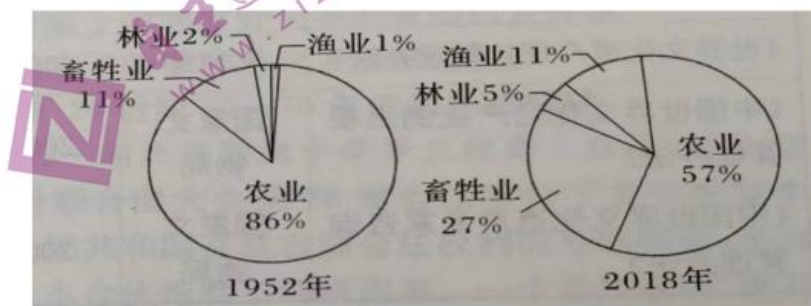 林业2%
渔业1%
畜牲业
11%
农业
86%
1952年
渔业11%
林业5%
农业
57%
畜牲业
27%
2018年